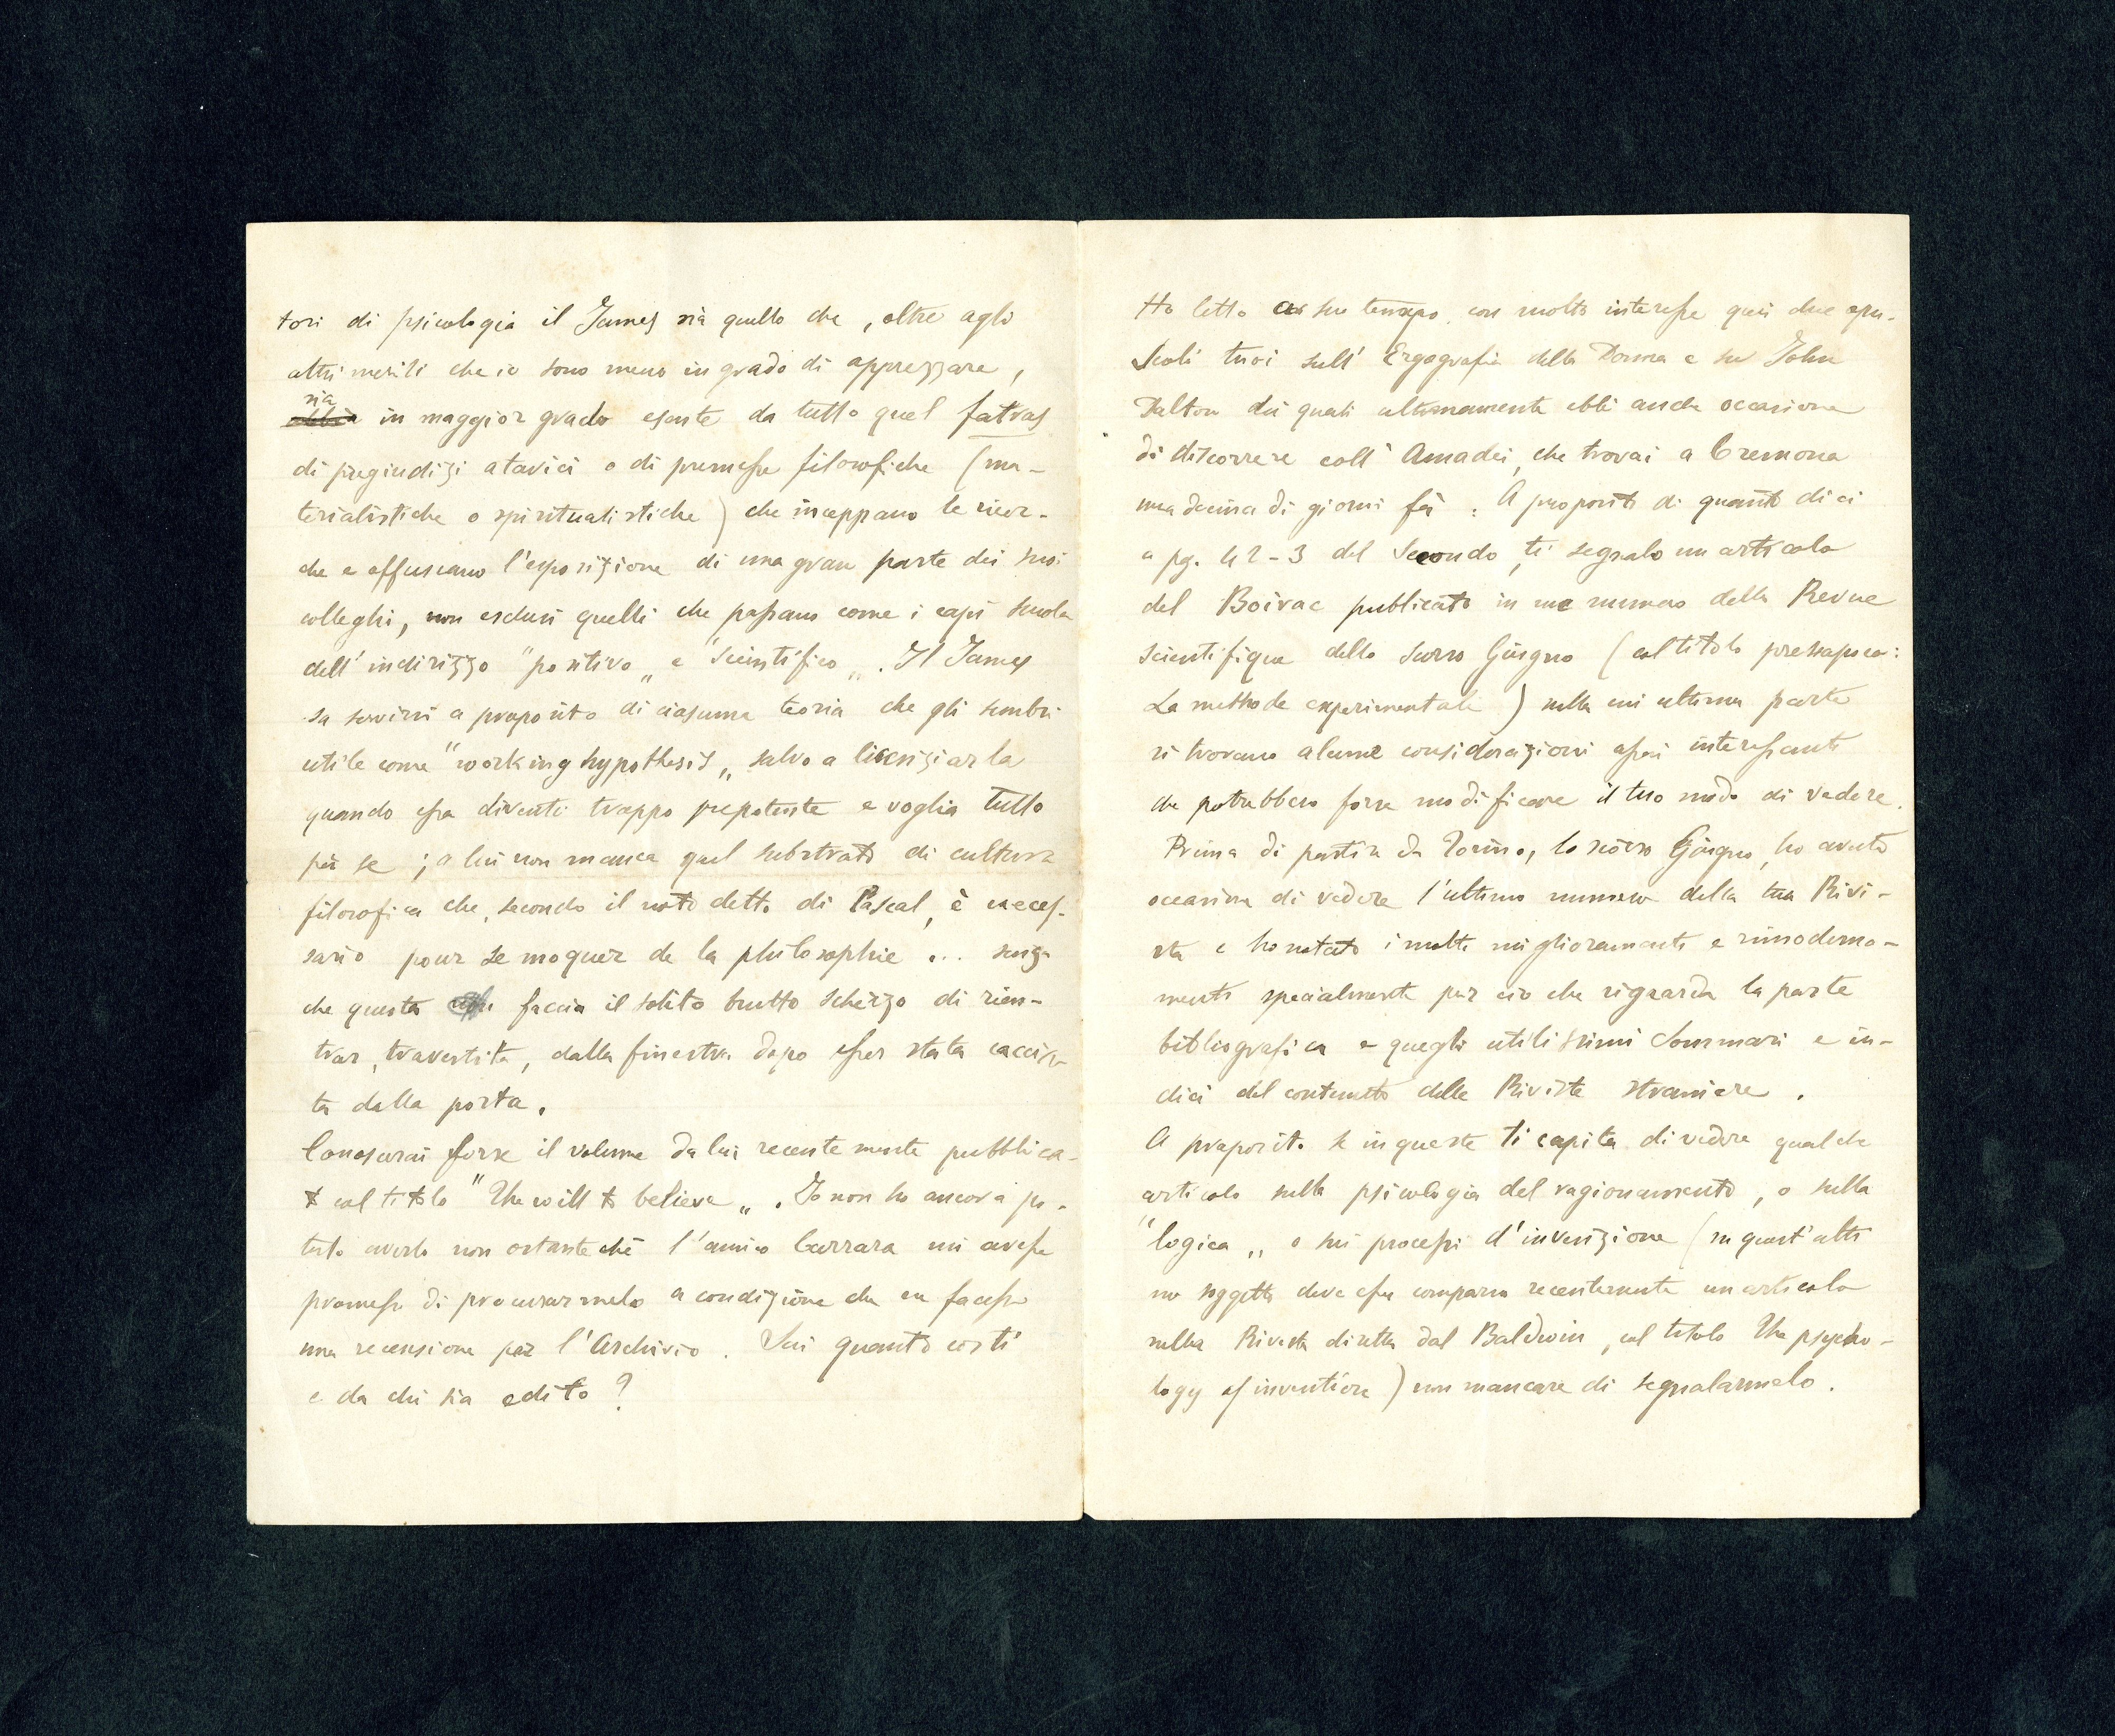 tori di psicologia il James sia quello che, oltre agli
altri meriti che io sono meno in grado di apprezzare,
sia in maggior grado esente da tutto quel fatras
di pregiudizi atavici o di premesse filosofiche (ma-
terialistiche o spiritualistiche) che inceppano le ricer-
che e offuscano l'esposizione di una gran parte dei suoi
colleghi, non esclusi quelli che passano come i capi scuola
dell'indirizzo "positivo„ e "scientifico„. Il James
sa servirsi a proposito di ciascuna teoria che gli sembri
utile come "working hypothesis„ salvo a licenziarla
quando essa diventi troppo prepotente e voglia tutto
per se; a lui non manca quel substrato di cultura
filosofica che, secondo il noto detto di Pascal, è neces-
sario pour se moquer de la philosophie ... senza
che questa faccia il solito brutto scherzo di rien-
trar, travestita, dalla finestra dopo esser stata caccia-
ta dalla porta.
Conoscerai forse il volume da lui recentemente pubblica-
to col titolo "The will to believe„. Io non ho ancora po-
tuto averlo non ostante che l'amico Carrara mi avesse
promesso di procurarmelo a condizione che ne facessi
una recensione per l'Archivio. Sai quanto costi
e da chi sia edito?
Ho letto a suo tempo con molto interesse quei due opu-
scoli tuoi sull'Ergografia della Donna e su John
Dalton dei quali ultimamente ebbi anche occasione
di discorrere coll'Amadei, che trovai a Cremona
una decina di giorni fà. A proposito di quanto dici
a pg. 42-3 del Secondo, ti segnalo un articolo
del Boirac publicato in un numero della Revue
scientifique dello scorso Giugno (col titolo pressapoco:
La methode experimentale) nella cui ultima parte
si trovano alcune considerazioni assai interessanti
che potrebbero forse modificare il tuo modo di vedere.
Prima di partire da Torino, lo scorso Giugno, ho avuto
occasione di vedere l'ultimo numero della tua Rivi-
sta e ho notato i molti miglioramenti e rimoderna-
menti specialmente per ciò che riguarda la parte
bibliografica e quegli utilissimi Sommari e in-
dici del contenuto delle Riviste straniere.
A proposito se in queste ti capita di vedere qualche
articolo sulla psicologia del ragionamento, o sulla
"logica„ o sui processi d'invenzione (su quest'ulti
mo soggetto deve esser comparso recentemente un articolo
nella Rivista diretta dal Baldwin, col titolo The psycho-
logy of invention) non mancare di segnalarmelo.